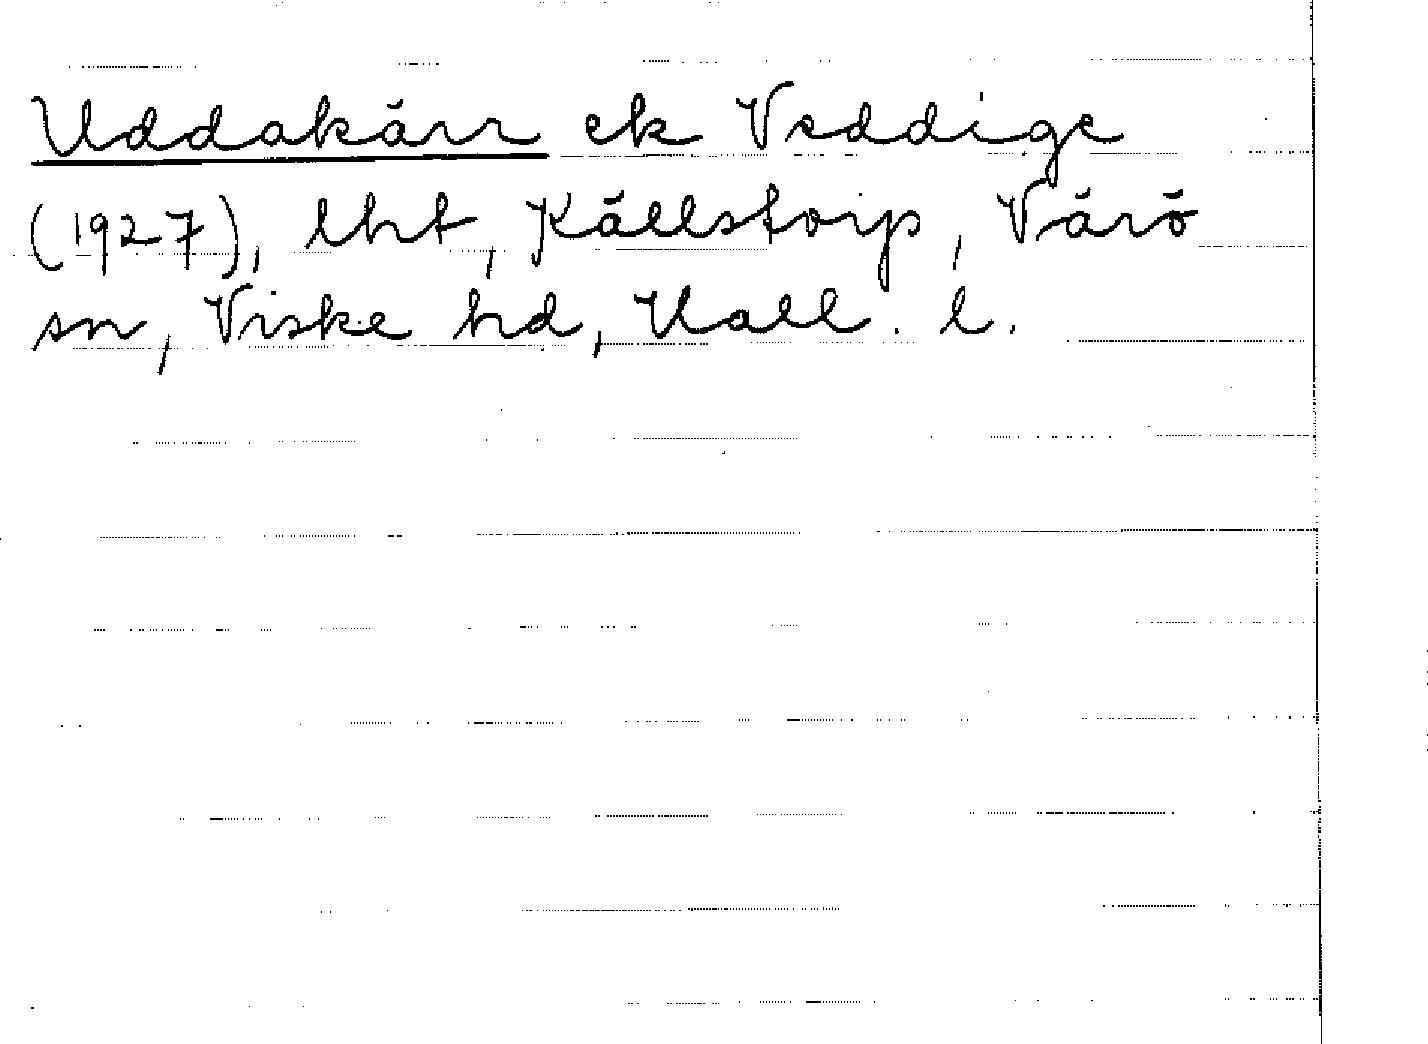 Uddakärr ek Veddige
(1927), lht, Källstorp, Värö
sn, Viske hd, Hall. l.